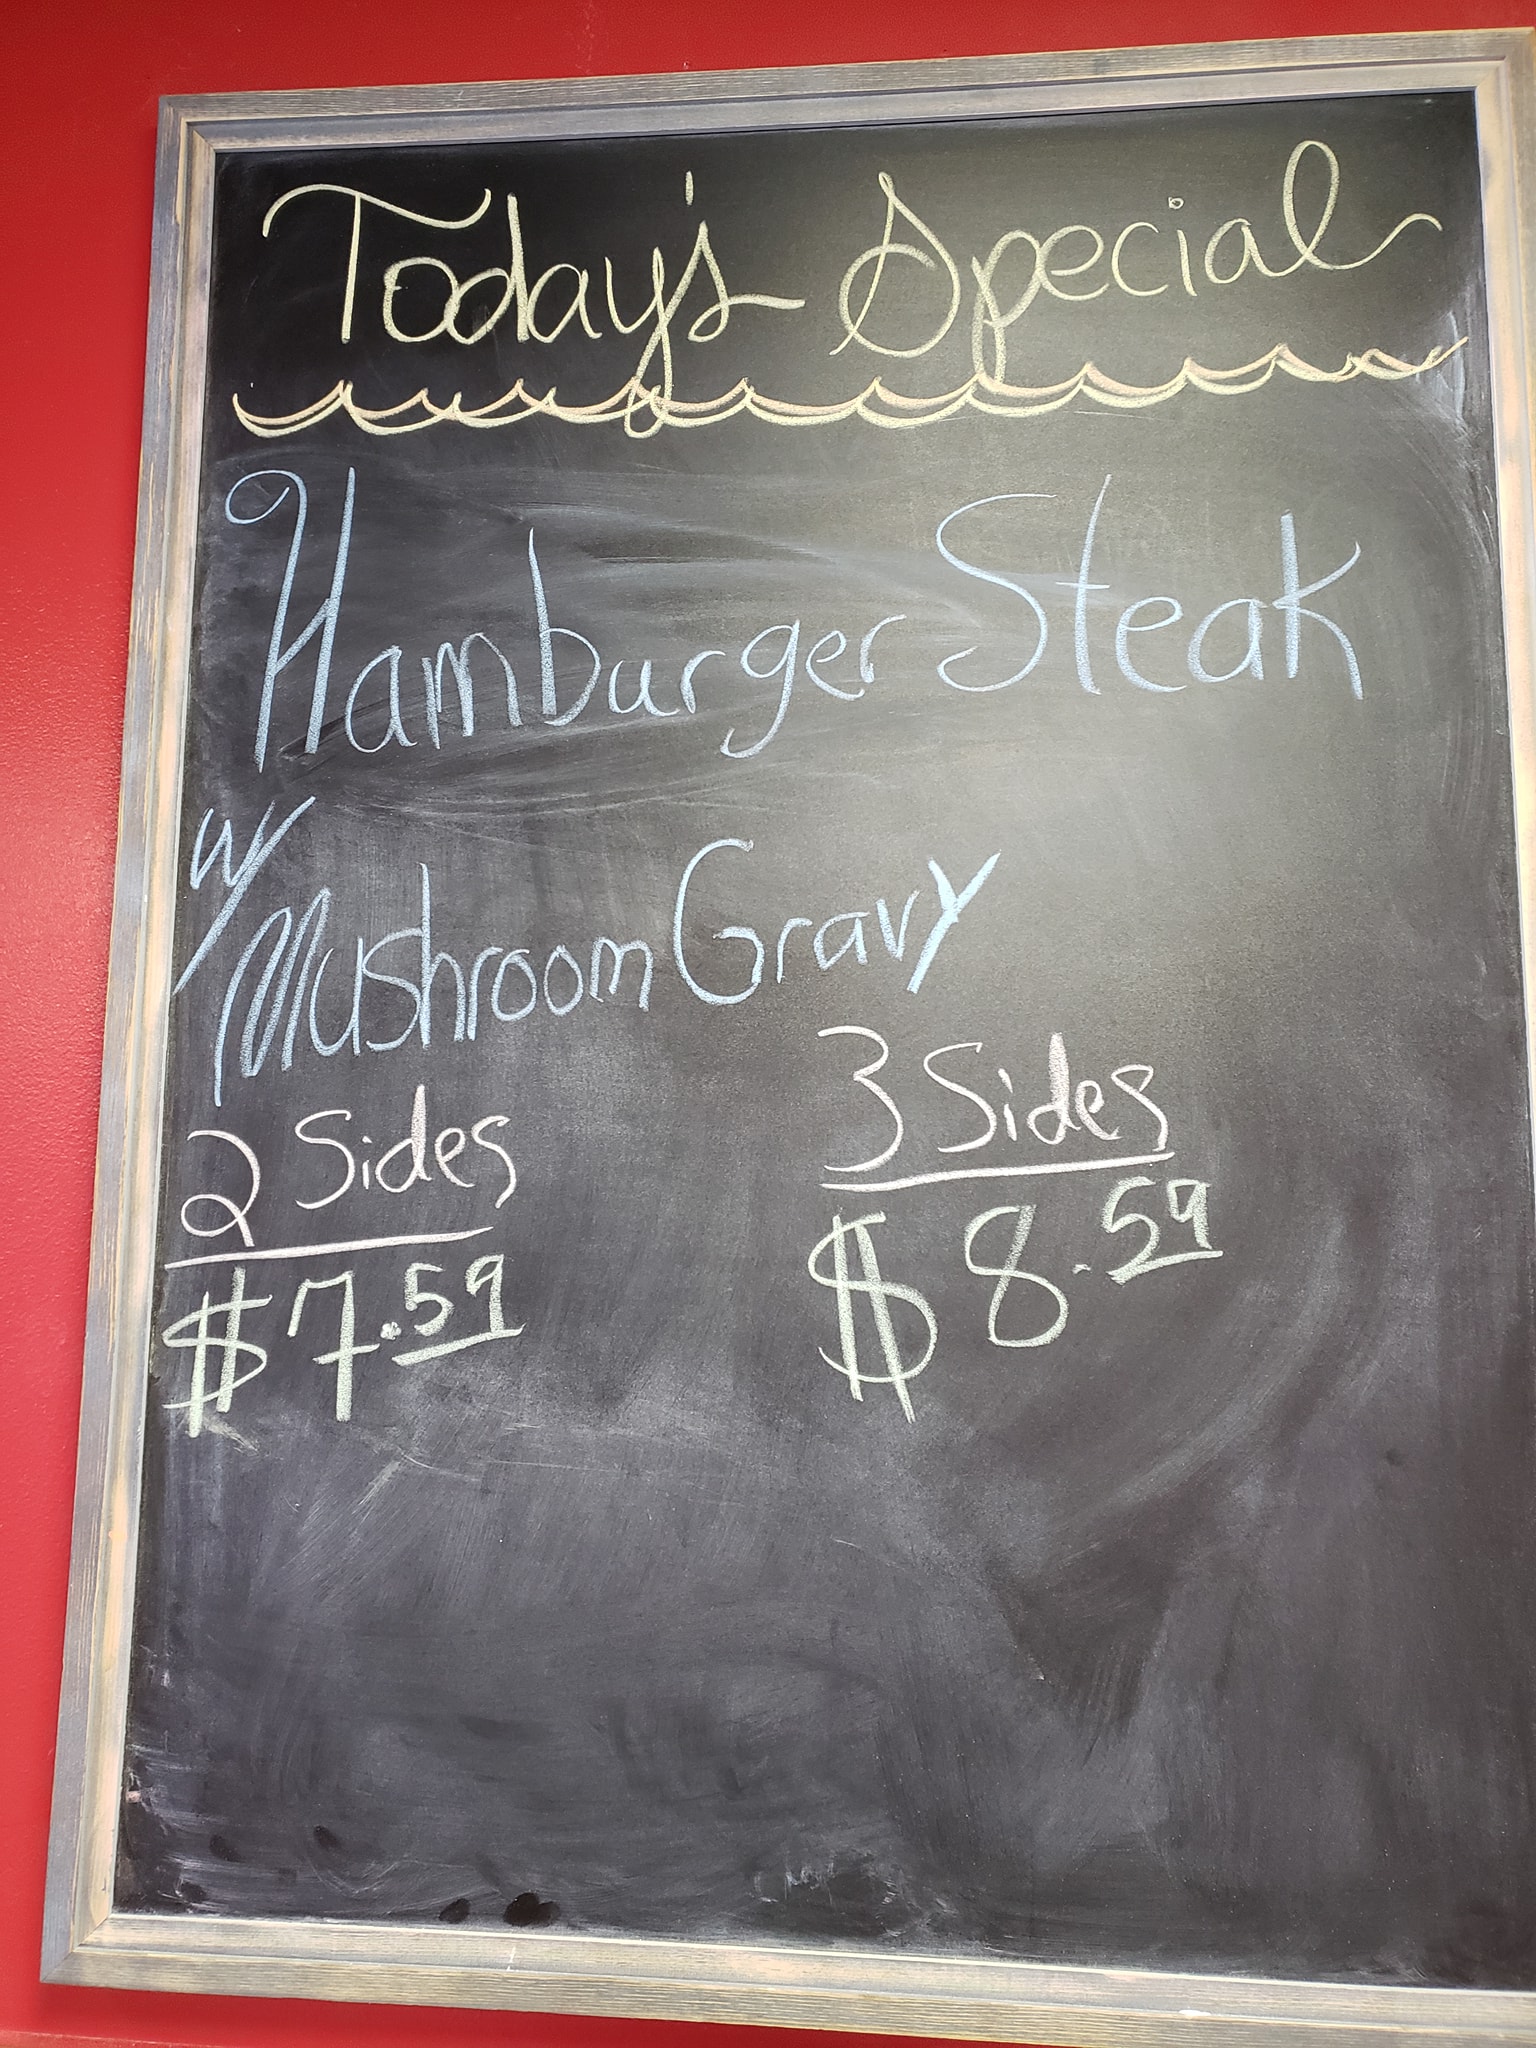 Today's Special
Hamburger Steak
w/ Mushroom Gravy
2 Sides
$7.59
3 Sides
$8.59